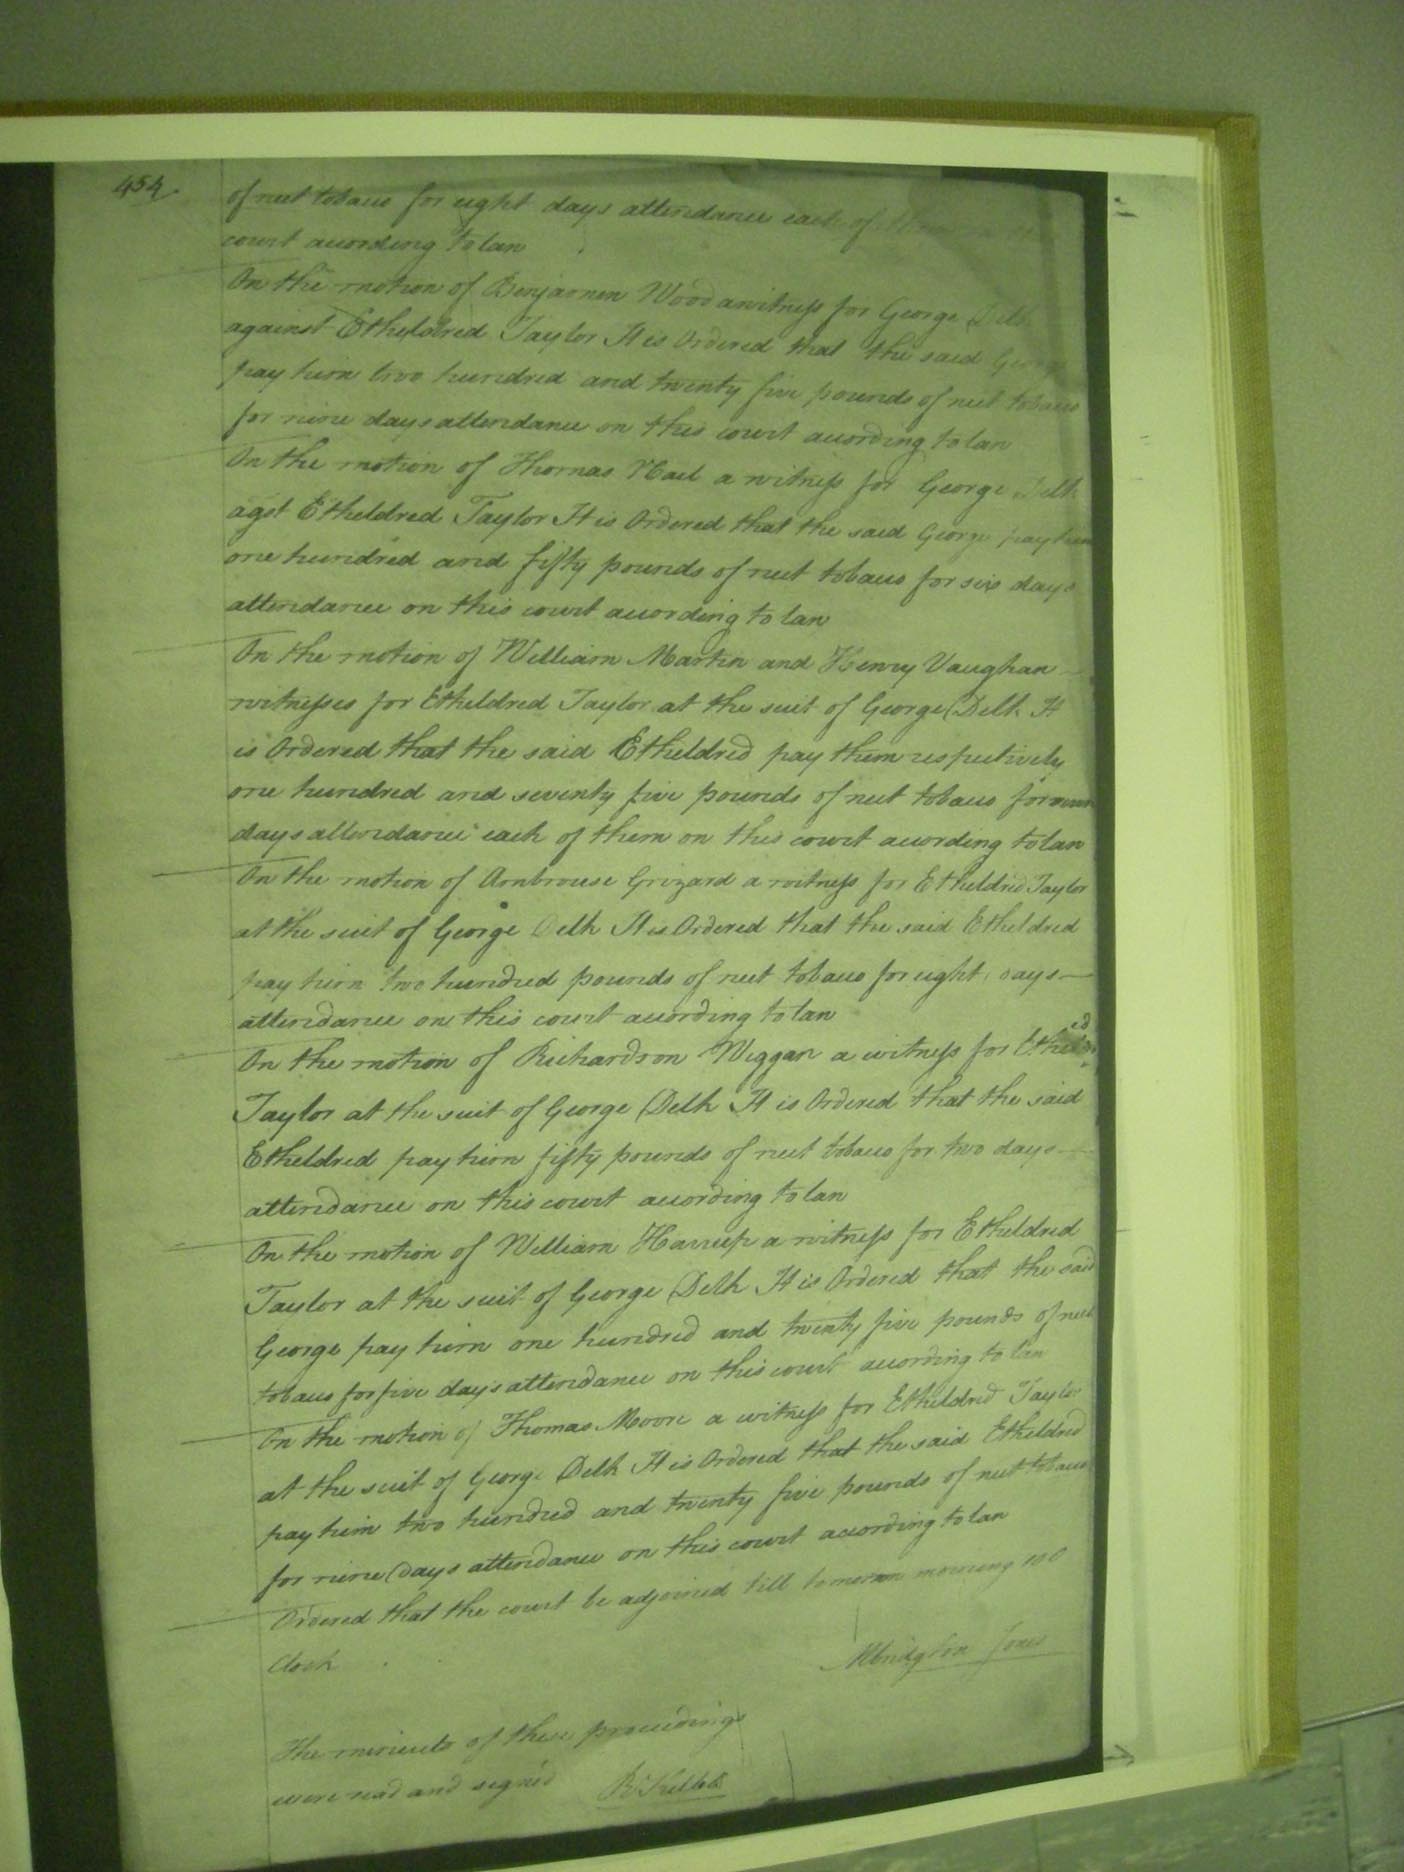 454.
of neet tobaco for eight days attendance each of them
court acording to law
On the motion of Benjamen Wood a witness for George Delk
against Etheldred Taylor It is Ordered that the said George
pay him two hundred and twenty five pounds of neet tobaco
for nine days attendance on this court acording to law
On the motion of Thomas Hail a witness for George Delk
agst Etheldred Taylor It is Ordered that the said George pay him
one hundred and fifty pounds of neet tobaco for six days
attendance on this court acording to law
On the motion of William Martin and Henry Vaughan
witnesses for Etheldred Taylor at the suit of George Delk It
is Ordered that the said Etheldred pay them respectively
one hundred and seventy five pounds of neet tobaco for seven
days attendance each of them on this court acording to law
On the motion of Ambrouse Grizard a witness for Etheldred Taylor
at the suit of George Delk It is Ordered that the said Etheldred
pay him two hundred pounds of neet tobaco for eight days
attendance on this court acording to law
On the motion of Richardson Wiggan a witness for Etheldred
Taylor at the suit of George Delk It is Ordered that the said
Etheldred pay him fifty pounds of neet tobaco for two days
attendance on this court acording to law
On the motion of William Harrup a witness for Etheldred
Taylor at the suit of George Delk It is Ordered that the said
George pay him one hundred and twenty five pounds of neet
tobaco for five days attendance on this court acording to law
On the motion of Thomas Moore a witness for Etheldred Taylor
at the suit of George Delk It is Ordered that the said Etheldred
pay him two hundred and twenty five pounds of neet tobaco
for nine days attendance on this court acording to law
Ordered that the court be adjoined till tomorow morning 10 O
Clock
Albridgton Jones
The minuets of these proceedings
were read and signed R Kello